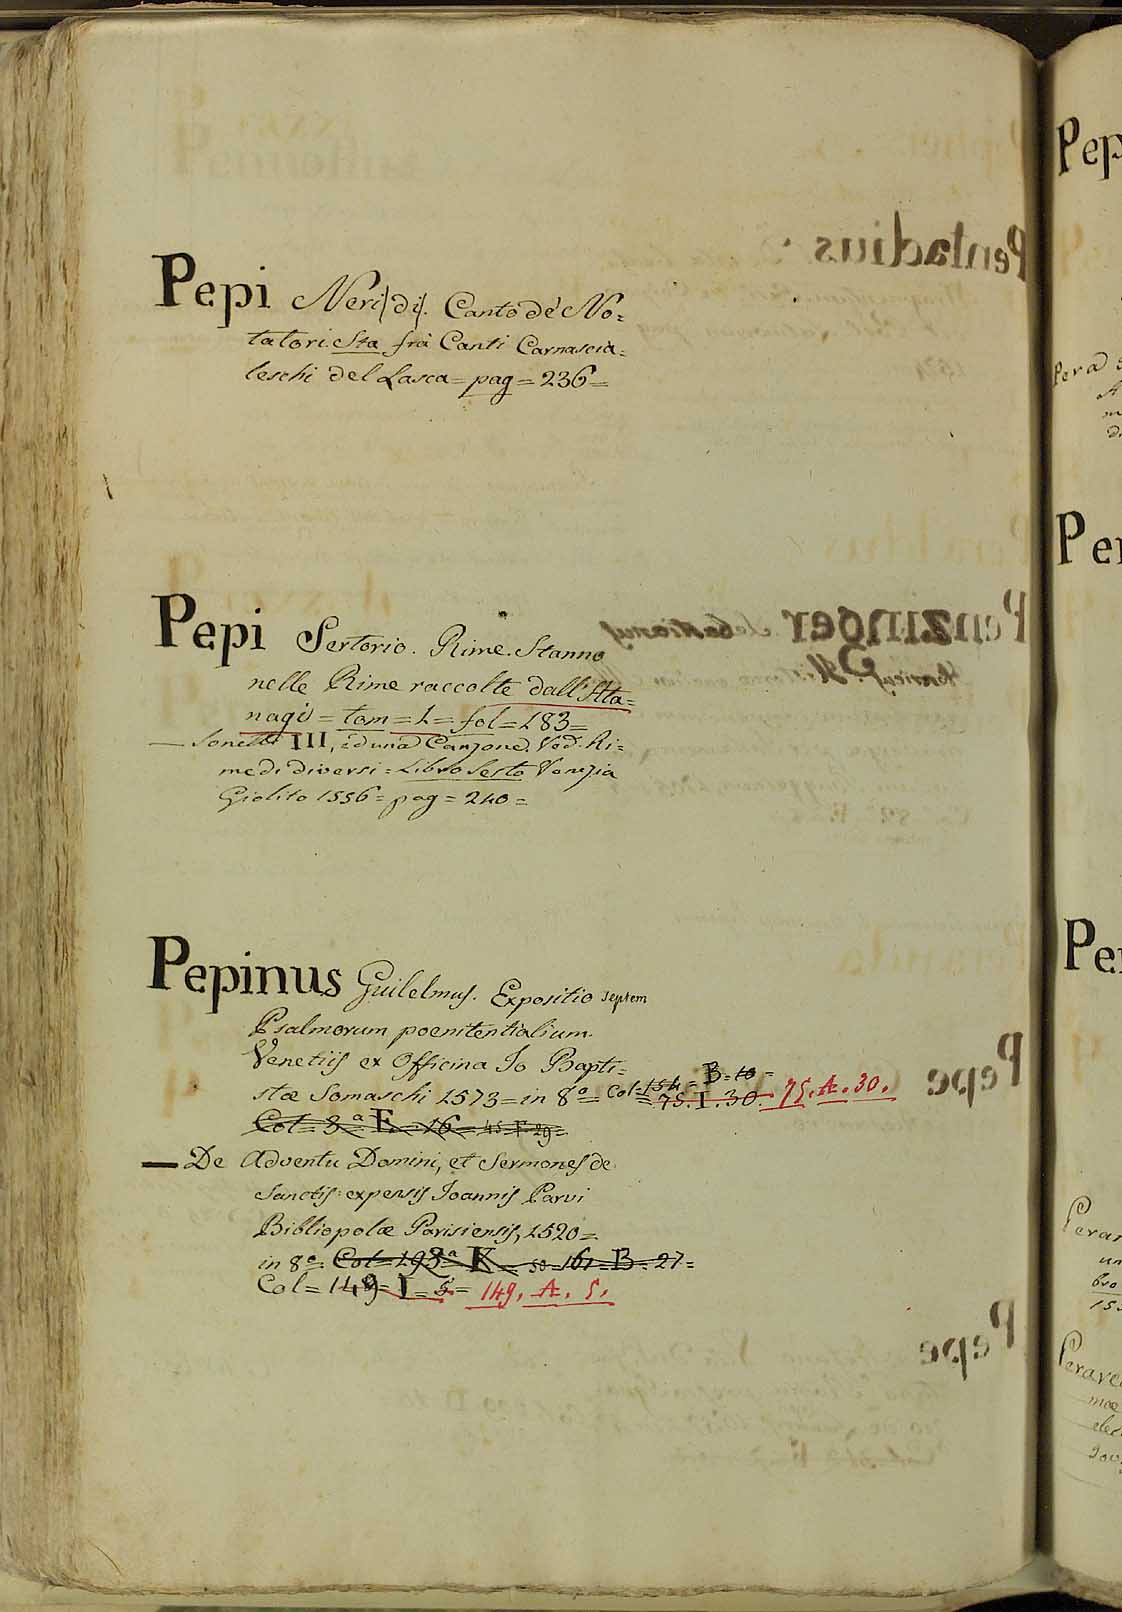 Pepi Neri (di). Canto de' No=
tatori. Sta frà Canti Carnascia=
leschi del Lasca = pag = 236 =
Pepi Sertorio. Rime. Stanno
nelle Rime raccolte dall'Ata=
nagi = tom = 1 = fol = 183 =
— Sonetti III, ed una Canzone. Ved. Ri=
me di diversi = Libro Sesto Venezia
Giolito 1556 = pag = 240 =
Pepinus Guilelmus. Expositio septem
Psalmorum poenitentialium.
Venetiis ex Officina Io Bapti=
stæ Somaschi 1573 = in 8º = Col = 154 = B = 10 =
= 75. I. 30. 75. A. 30.
Col = 8ª E = 16 = 45 = F 29 =
— De Adventu Domini, et Sermones de
Sanctis: expensis Joannis Parvi
Bibliopolæ Parisiensis, 1520 =
in 8º = Col = 193ª K = 50 = 161 = B = 27 =
Col = 149 = I = 5 = 149. A. 5.
Pep
Pera
Per
Per